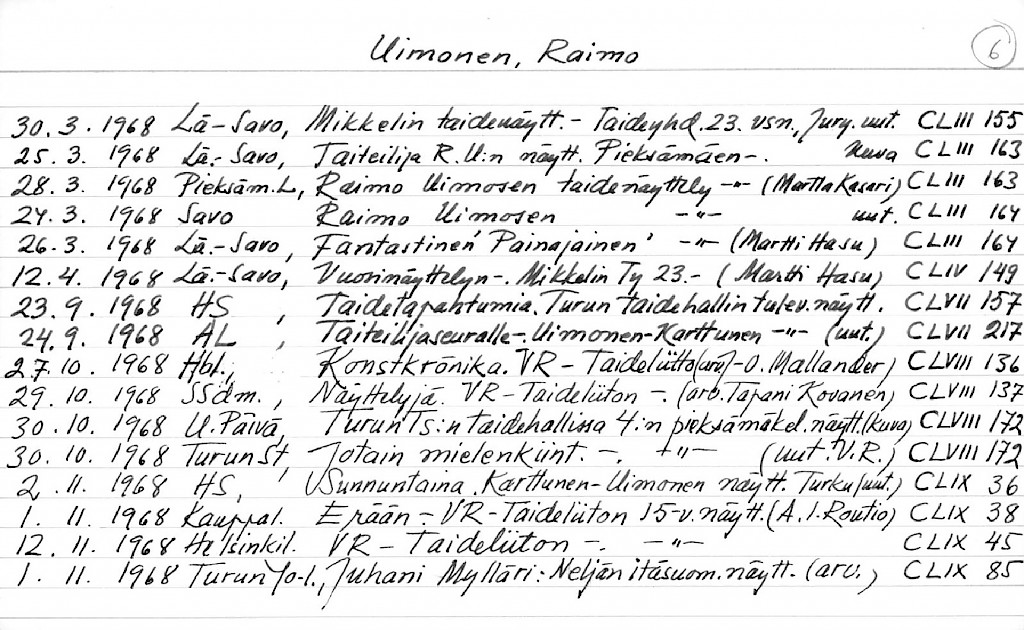 Uimonen, Raimo 6
30.3.1968 Lä-Savo, Mikkelin taidenäytt.- Taideyhd. 23. vsn., Jury. uut. CLIII 155
25.3. 1968 Lä.-Savo, Taiteilija R.U:n näytt. Pieksämäen-. Kuva CLIII 163
28.3. 1968 Pieksäm.L, Raimo Uimosen taidenäyttely -"- (Martta Kasari) CLIII 163
24.3. 1968 Savo Raimo Uimosen -"- uut. CLIII 164
26.3. 1968 Lä.-Savo, Fantastinen 'Painajainen' -"- (Martti Hasu) CLIII 164
12.4. 1968 Lä.-Savo, Vuosinäyttelyn-. Mikkelin Ty 23.- (Martti Hasu) CLIV 149
23.9. 1968 HS, Taidetapahtumia. Turun taidehallin tulev. näytt. CLVII 157
24.9. 1968 AL, Taiteilijaseuralle-. Uimonen-Karttunen -"- (uut.) CLVII 217
27.10. 1968 Hbl., Konstkrönika. VR- Taideliitto (arv)-O. Mallander) CLVIII 136
29.10. 1968 SSdm., Näyttelyjä. VR-Taideliiton -. (arv. Tapani Kovanen) CLVIII 137
30.10. 1968 U.Päivä, Turun Ts:n taidehallissa 4:n pieksämäkel. näytt. (kuva) CLVIII 172
30.10. 1968 Turun St, Jotain mielenkiint. -. -"- (uut. V.R.) CLVIII 172
2.11. 1968 HS, Sunnuntaina. Karttunen-Uimonen näytt. Turku (uut.) CLIX 36
1.11. 1968 Kauppal. Erään-. VR-Taideliiton 15-v. näytt. (A.I. Routio) CLIX 38
12.11. 1968 Helsinkil. VR- Taideliiton -. -"- CLIX 45
1.11. 1968 Turun Yo-l., Juhani Mylläri: Neljän itäsuom. näytt. (arv.) CLIX 85